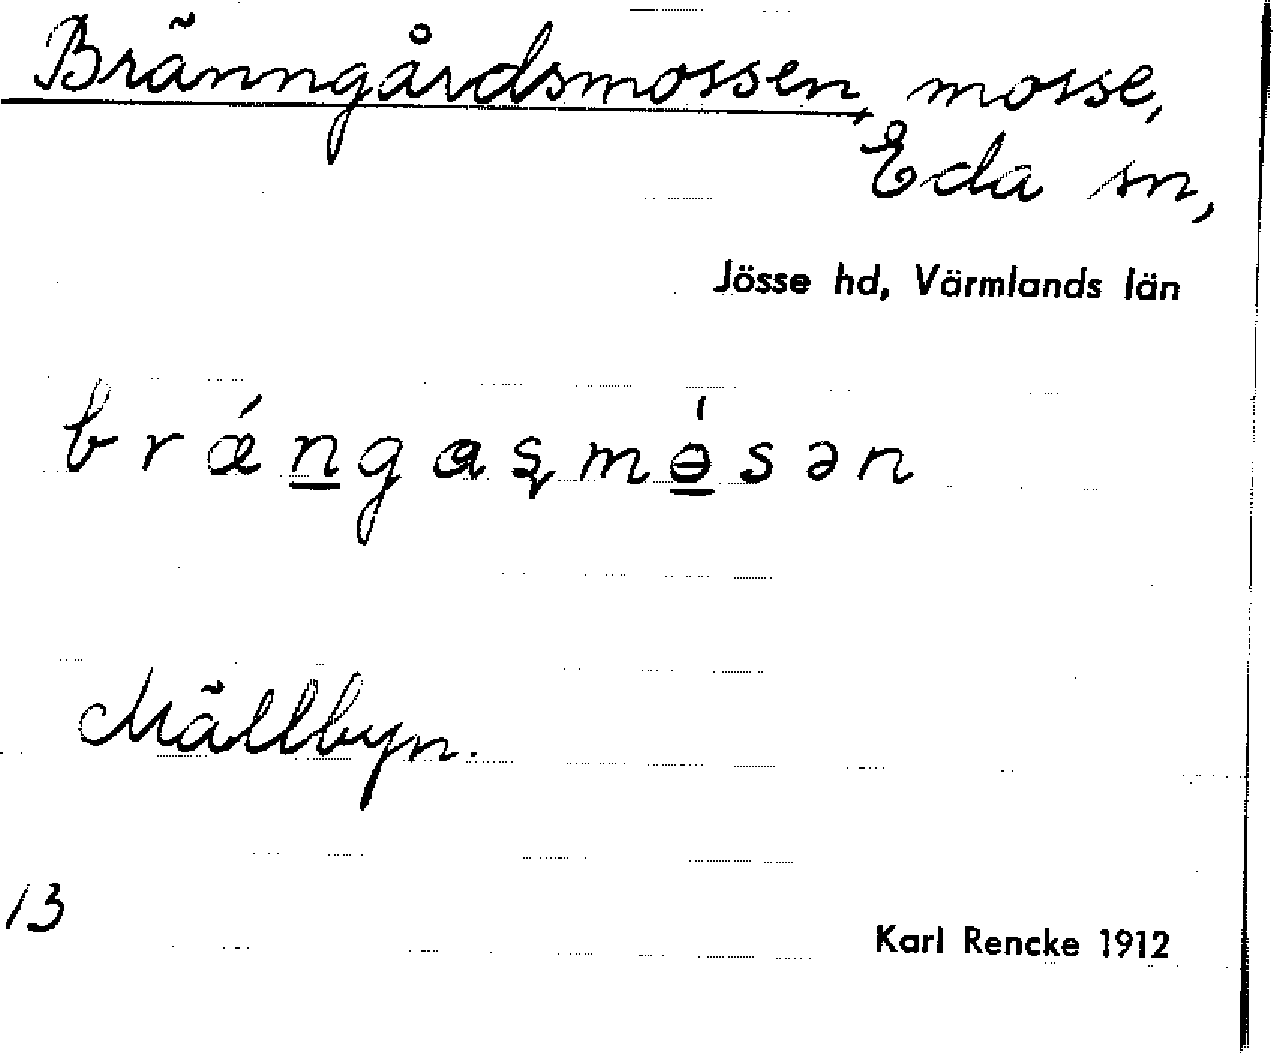 Bränngårdsmossen, mosse,
Eda sn,
Jösse hd, Värmlands län
brǽn̲gaşmə̲́sən
Mällbyn.
13
Karl Rencke 1912